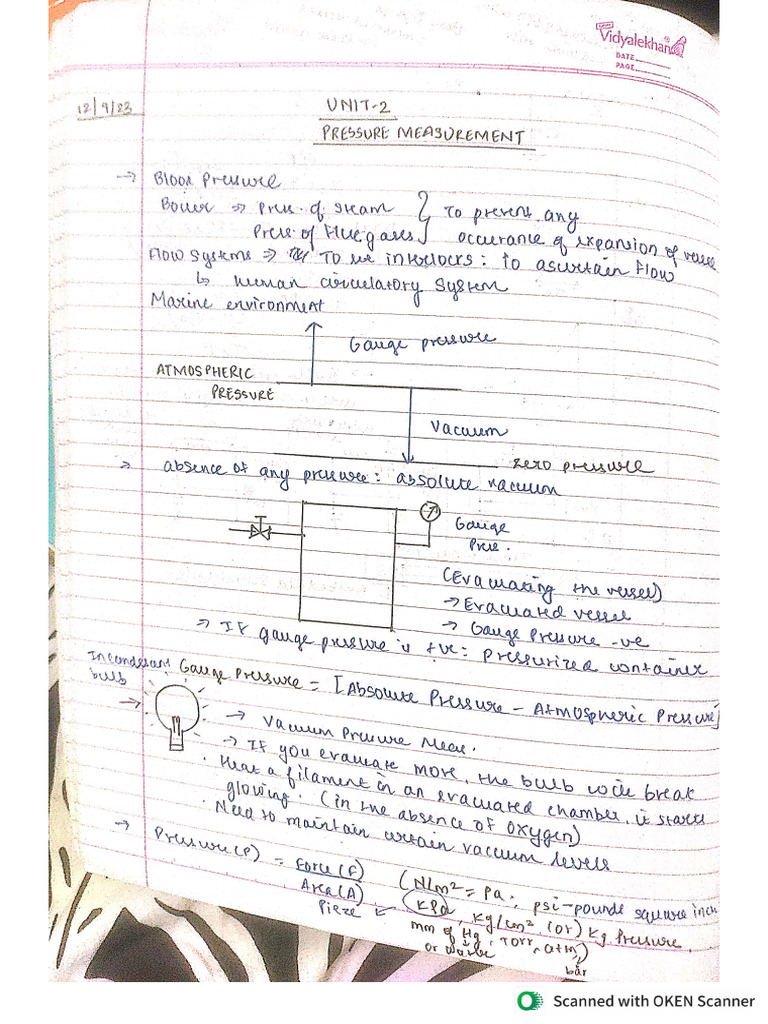 Vidyalekhan
DATE
PAGE
12/9/23
UNIT-2
PRESSURE MEASUREMENT
→ Blood Pressure
Boiler ⇒ Pres. of steam } To prevent any
Press of flue gases } occurance of expansion of vessel
Flow systems ⇒ To use interlocks: to ascertain Flow
↳ human circulatory system
Marine environment
Gauge pressure
ATMOSPHERIC
PRESSURE
Vacuum
zero pressure
⇒ absence of any pressure: absolute vacuum
Gauge
Pres.
(Evacuating the vessel)
→ Evacuated vessel
→ Gauge Pressure -ve
⇒ If gauge pressure is +ve: Pressurized container
Incandescent
bulb
Gauge Pressure = [Absolute Pressure - Atmospheric Pressure]
→ Vacuum Pressure Meas.
→ If you evacuate more, the bulb will break
· Heat a filament in an evacuated chamber, it starts
glowing. (in the absence of oxygen)
· Need to maintain certain vacuum levels
→ Pressure(P) = Force(F)
Area(A)
(N/m² = Pa, psi-pounds square inch
Pieze ← KPa, Kg/cm² (or) Kg Pressure,
mm of Hg, Torr, atm)
or water
bar
Scanned with OKEN Scanner